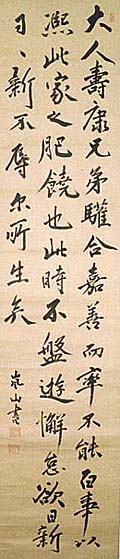 大人壽康兄弟驩合嘉善而率不能百事以
熈此家之肥饒也此時不盤遊懈怠欲日新
日〻新不辱尓所生矣
嵐山書